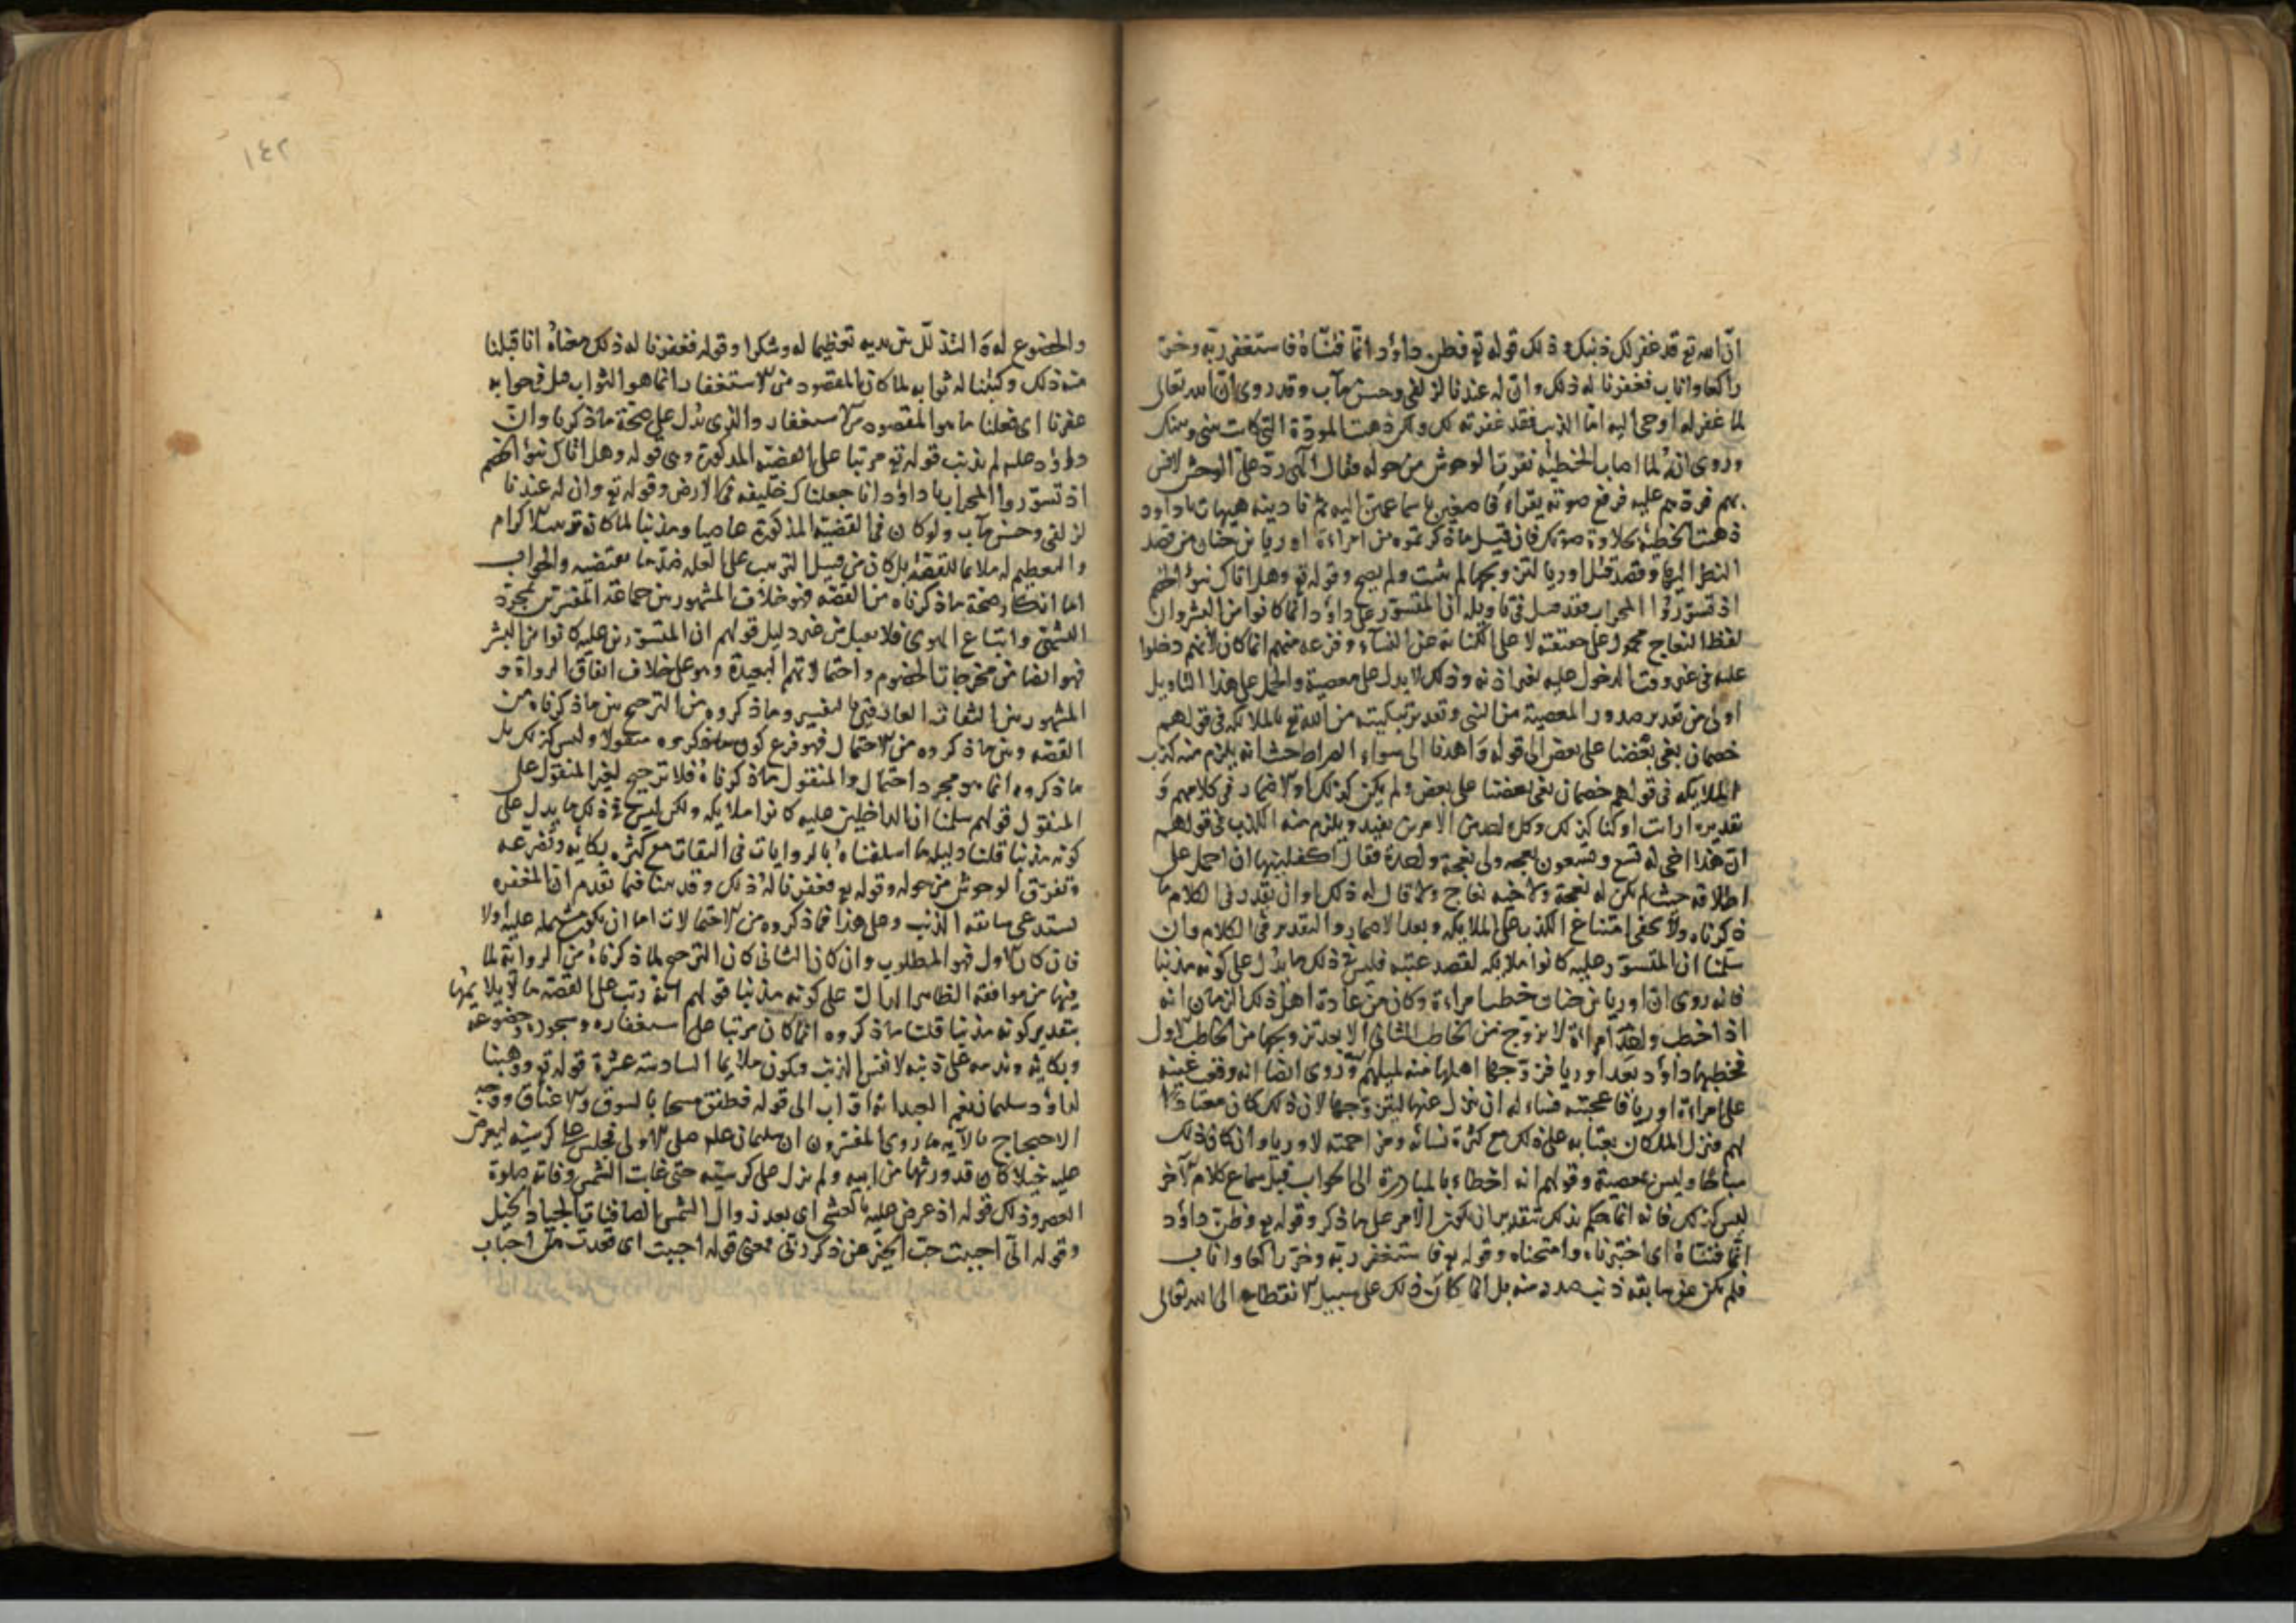 ان الله تع قد غفر لك ذنبك وذلك قوله تع فظن داؤد انما فتناه فاستغفر ربه وخر
راكعا واناب فغفرنا له ذلك وان له عندنا لزلفى وحسن مآب وقد روى ان الله تعالى
لما غفر له اوحى اليه اما الذنب فقد غفرته لك ولكن ذهبت المودة التي كانت بيني وبينك
وروى انه لما اصاب الخطيئة نفرت الوحوش من حوله فقال الهى رد على الوحش لانس
بهم فردهم عليه فرفع صوته يقراء فاصغين باسماعهن اليه ثم نادينه هيهات ياداود
ذهبت الخطيئة بحلاوة صوتك فان قيل ما ذكرتموه من امراءة اوريا بن حنان من قصد
النظر اليها وقصد قتل اوريا لتزويجها لم يثبت ولم يصح وقوله تع وهل اتاك نبؤ الخصم
اذ تسوروا المحراب فقد قيل في تاويله ان المتسور على داؤد انما كانوا من البشر وان
لفظ النعاج محمول على حقيقته لا على الكناية عن النسآء وفزعه منهم انما كان لانهم دخلوا
عليه في غير وقت الدخول عليه بغير اذنه وذلك لا يدل على معصية والحمل على هذا التاويل
اولى من تقدير صدور المعصية من النبى وتقدير تبكيته من الله تع بالملائكة في قولهم
خصمان بغى بعضنا على بعض الى قوله واهدنا الى سواء الصراط حيث انه يلزم منه كذب
الملايكه فى قولهم خصمان بغى بعضنا على بعض ولم يكن كذلك او الاضمار فى كلامهم و
تقديره ارايت لو كنا كذلك وكل واحد من الامرين بعيد ويلزم منه الكذب فى قولهم
ان هذا اخى له تسع وتسعون نعجه ولى نعجة واحدة فقال اكفلنيها ان احمل على
اطلاقه حيث لم يكن له نعجة ولا لاخيه نعاج ولا قال له ذلك او ان يقدر فى الكلام ما
ذكرناه ولا يخفى امتناع الكذب على الملايكه وبعد الاضمار والتقدير فى الكلام وان
سلمنا ان المتسور عليه كانوا ملايكه لقصد عتبه فليس فى ذلك ما يدل على كونه مذنبا
فانه روى ان اوريا بن حنان خطب امراءة وكان من عادة اهل ذلك الزمان انه
اذا خطب واحد امراءة لا يزوج من الخاطب الثانى الا بعد تزويجها من الخاطب الاول
فخطبها داؤد بعد اوريا فزوجها اهلها منه لميلهم وروى ايضا انه وقف عينه
على امراءة اوريا فاعجبته فساءله ان ينزل عنها ليتزوجها لان ذلك كان معتادا
لهم فنزل الملكان بعتابه على ذلك مع كثرة نسائه ومزاحمته لاوريا وان كان ذلك
مباحا وليس بمعصية وقولهم انه اخطاء بالمبادرة الى الجواب قبل سماع كلام الآخر
ليس كذلك فانه انما حكم بذلك بتقدير ان يكون الامر على ما ذكر وقوله تع وظن داؤد
انما فتناه اى اختبرناه وامتحناه وقوله تع فاستغفر ربه وخر راكعا واناب
فلم يكن عن سابقة ذنب صدر منه بل انما كان ذلك على سبيل الانقطاع الى الله تعالى
١٤٢
والخضوع له والتذلل بين يديه تعظيما له وشكرا وقوله فغفرنا له ذلك معناه انا قبلنا
منه ذلك وكتبنا له ثوابه لما كان المقصود من الاستغفار انما هو الثواب قيل فى جوابه
غفرنا اى فعلنا ما هو المقصود من الاستغفار والذى يدل على صحة ما ذكرنا وان
داؤد عليه لم يذنب قوله تع مرتبا على القصة المذكورة وهى قوله وهل اتاك نبؤ الخصم
اذ تسوروا المحراب يا داؤد انا جعلناك خليفه فى الارض وقوله تع وان له عندنا
لزلفى وحسن مآب ولو كان فى القصة المذكورة عاصيا ومذنبا لما كان ترتيب الاكرام
والتعظيم له ملايما للقصة بل كان من قبيل الترتيب على العله ضد ما تقتضيه والجواب
اما انكار صحة ما ذكرناه من القصة فهو خلاف المشهور من جماعة المفسرين بمجرد
التشهى واتباع الهوى فلا يقبل من غير دليل قولهم ان المتسورين عليه كانوا من البشر
فهو ايضا من مخرجات الخصوم واحتمالاتهم البعيدة وهو على خلاف اتفاق الرواة و
المشهور من الثقات العارفين بالتفسير وما ذكروه من الترجيح بين ما ذكرناه من
القصه وبين ما ذكروه من الاحتمال فهو فرع كون ما ذكروه منقولا وليس كذلك بل
ما ذكروه انما هو مجرد احتمال والمنقول ما ذكرناه فلا ترجيح لغير المنقول على
المنقول قولهم سلمنا ان الداخلين عليه كانوا ملايكه ولكن ليس فى ذلك ما يدل على
كونه مذنبا قلنا دليله ما اسلفناه بالروايات فى الثقات مع كثرة بكائه وتضرعه
وتفرق الوحوش من حوله وقوله تع فغفرنا له ذلك وقد بينا فيما تقدم ان المغفره
تستدعى سابقة الذنب وعلى هذا فما ذكروه من الاحتمالات اما ان يكون مشتمله عليه اولا
فان كان الاول فهو المطلوب وان كان الثانى كان الترجيح لما ذكرناه من الرواية لما
فيها من موافقة الظاهر الدال على كونه مذنبا قولهم انه رتب على القصة ما لا يلايمها
بتقدير كونه مذنبا قلنا ما ذكروه انما كان مرتبا على استغفاره وسجوده وخضوعه
وبكائه وندمه على ذنبه لا نفس الذنب ويكون ملايما السادسة عشرة قوله تع ووهبنا
لداؤد سليمان نعم العبد انه اواب الى قوله فطفق مسحا بالسوق والاعناق ووجه
الاحتجاج بالآيه ما روى المفسرون ان سليمان عليه صلى الاولى فجلس على كرسيه ليعرض
عليه خيلا كان قد ورثها من ابيه ولم يزل على كرسيه حتى غابت الشمس وفاته صلوة
العصر وذلك قوله اذ عرض عليه بالعشى اى بعد زوال الشمس الصافنات الجياد الخيل
وقوله انى احببت حب الخير عن ذكر ربى معنى قوله احببت اى قعدت من احباب